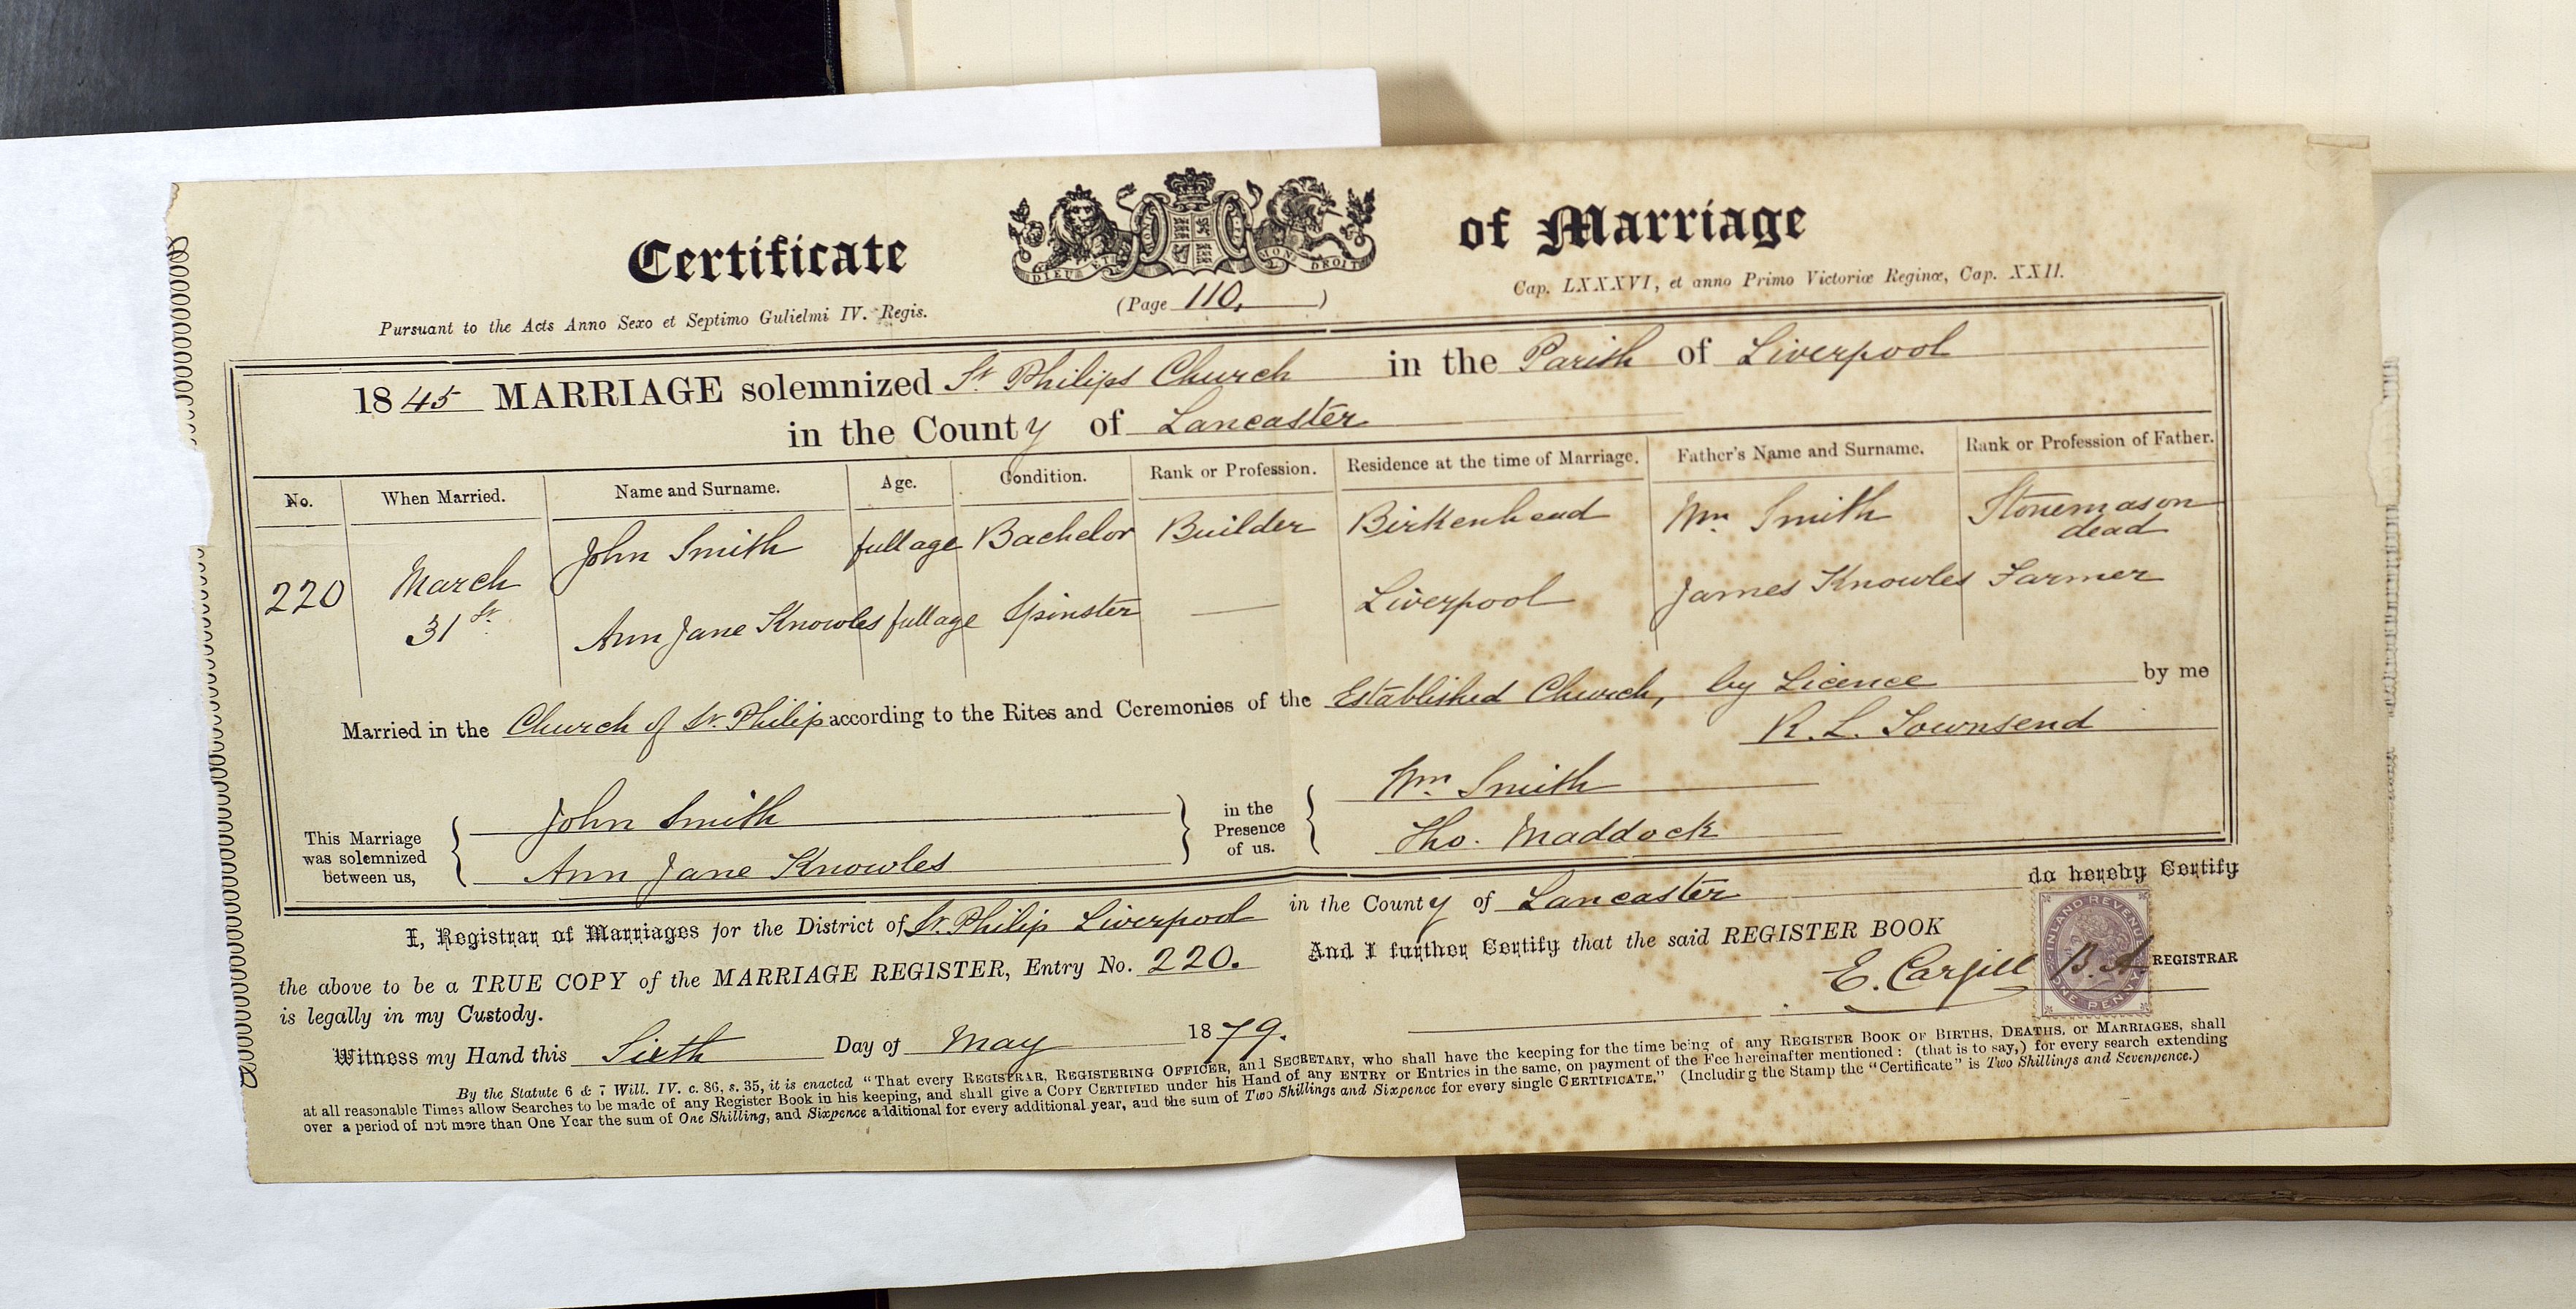 Certificate of Marriage
DIEU ET MON DROIT
(Page 110.)
Pursuant to the Acts Anno Sexo et Septimo Gulielmi IV. Regis. Cap. LXXXVI, et anno Primo Victoriæ Reginæ, Cap. XXII.
1845 MARRIAGE solemnized St Philips Church in the Parish of Liverpool
in the County of Lancaster
No. When Married. Name and Surname. Age. Condition. Rank or Profession. Residence at the time of Marriage. Father's Name and Surname. Rank or Profession of Father.
John Smith full age Bachelor Builder Birkenhead Wm Smith Stonemason
dead
220 March
31st
Ann Jane Knowles full age Spinster — Liverpool James Knowles Farmer
Married in the Church of St. Philip according to the Rites and Ceremonies of the Established Church, by Licence by me
R. L. Townsend
This Marriage
was solemnized
between us,
John Smith
Ann Jane Knowles
in the
Presence
of us.
Wm Smith
Tho. Maddock
I, Registrar of Marriages for the District of St. Philip Liverpool in the County of Lancaster do hereby Certify
the above to be a TRUE COPY of the MARRIAGE REGISTER, Entry No. 220. And I further Certify that the said REGISTER BOOK
is legally in my Custody.
E. Cargill B.A. REGISTRAR
INLAND REVENUE
ONE PENNY
Witness my Hand this Sixth Day of May 1879.
By the Statute 6 & 7 Will. IV. c. 86, s. 35, it is enacted "That every REGISTRAR, REGISTERING OFFICER, and SECRETARY, who shall have the keeping for the time being of any REGISTER BOOK OF BIRTHS, DEATHS, or MARRIAGES, shall
at all reasonable Times allow Searches to be made of any Register Book in his keeping, and shall give a COPY CERTIFIED under his Hand of any ENTRY or Entries in the same, on payment of the Fee hereinafter mentioned: (that is to say,) for every search extending
over a period of not more than One Year the sum of One Shilling, and Sixpence additional for every additional year, and the sum of Two Shillings and Sixpence for every single CERTIFICATE." (Including the Stamp the "Certificate" is Two Shillings and Sevenpence.)